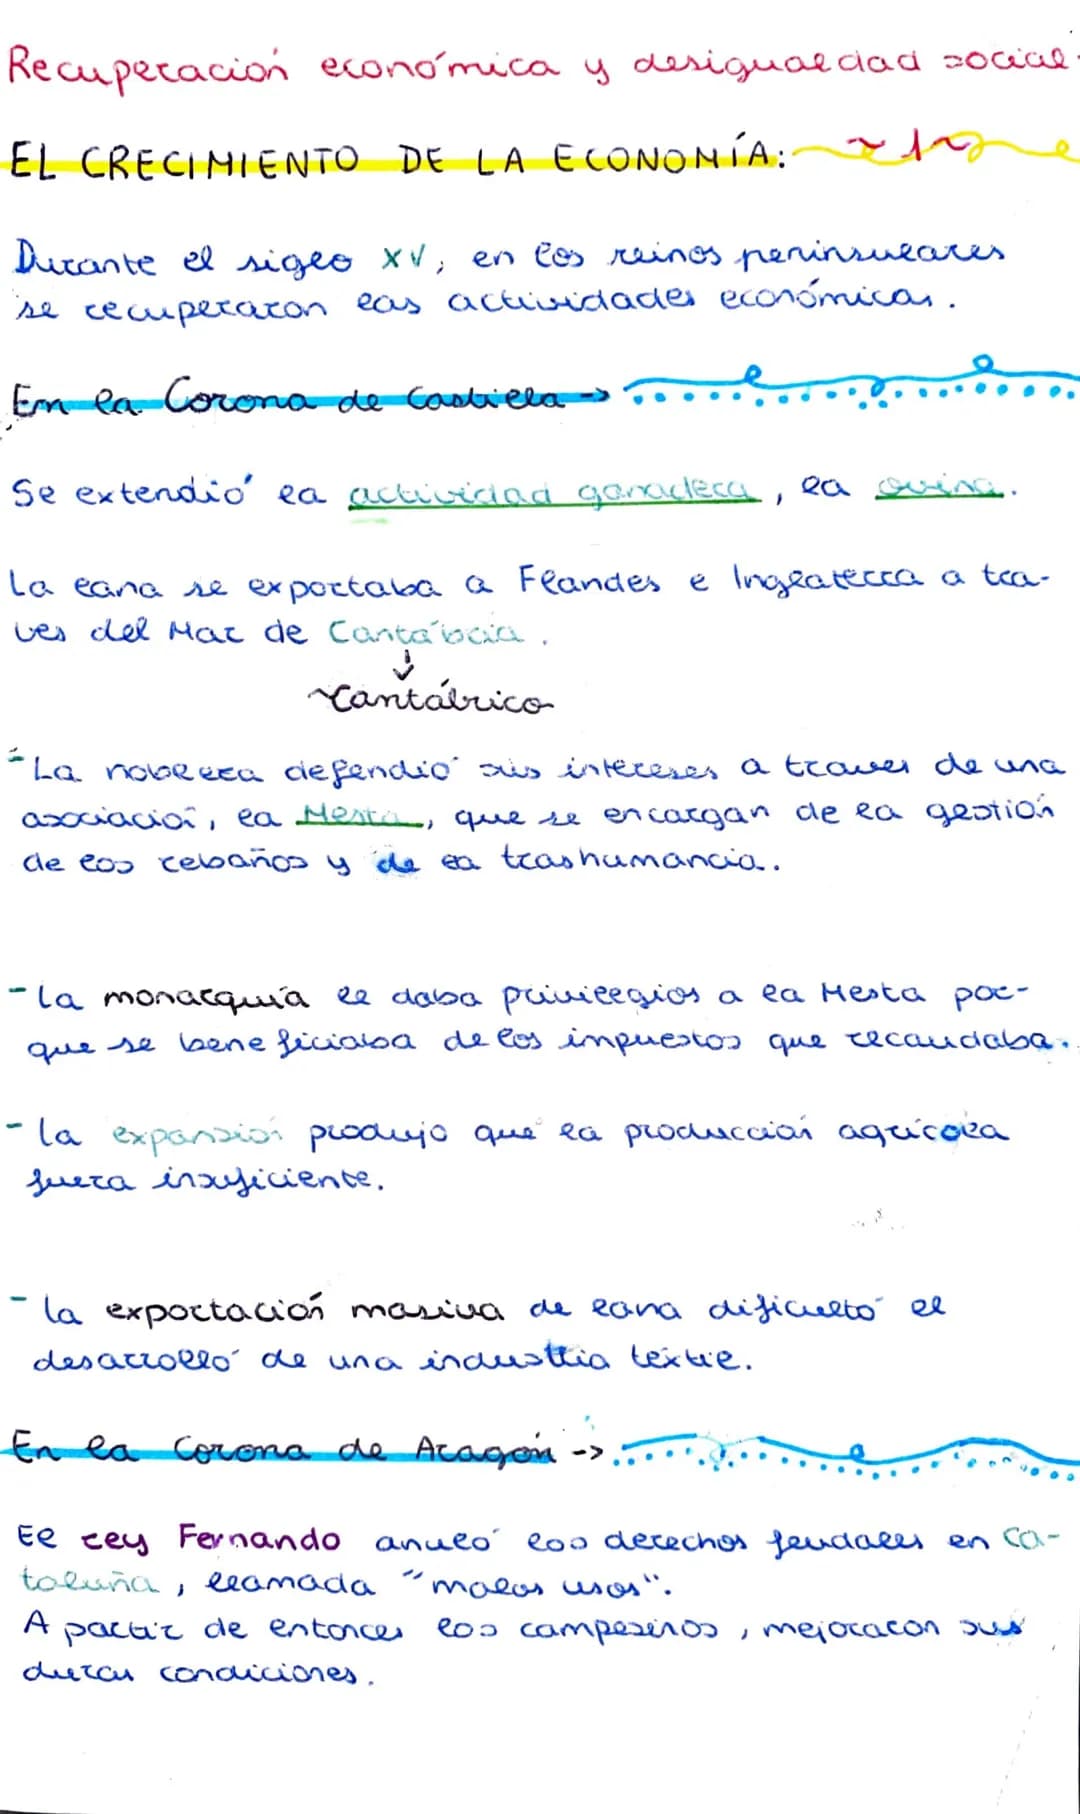 Recuperación económica y desigualdad social.
EL CRECIMIENTO DE LA ECONOMÍA:
Durante el siglo XV, en los reinos peninsulares
se recuperaron las actividades económicas.
En la Corona de Castilla ->
Se extendió la actividad ganadera, la ovina.
La lana se exportaba a Flandes e Inglaterra a tra-
ves del Mar de Cantábria.
↓
Cantábrico
- La nobleza defendió sus intereses a traves de una
asociación, la Mesta, que se encargan de la gestión
de los rebaños y de la trashumancia.
- La monarquía le daba privilegios a la Mesta por-
que se beneficiaba de los impuestos que recaudaba.
- La expansión produjo que la producción agrícola
fuera insuficiente.
- La exportación masiva de lana dificultó el
desarrolló de una industria textil.
En la Corona de Aragón ->
El rey Fernando anuló los derechos feudales en Ca-
taluña, llamada "malos usos".
A partir de entonces los campesinos, mejoraron sus
duras condiciones.